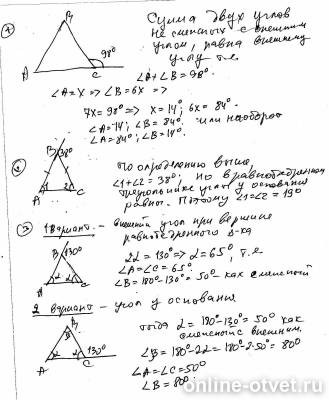 ① B
Сумма двух углов
не смежных с внешним
углом, равна внешнему
углу т.е.
A C 98°
∠A+∠B=98°
∠A=x => ∠B=6x =>
7x=98° => x=14°; 6x=84°
∠A=14°; ∠B=84° или наоборот
∠A=84°; ∠B=14°
② B 38°
A 1 2 C
По определению выше
∠1+∠2=38°; но в равнобедренном
треугольнике углы у основания
равны. Поэтому ∠1=∠2=19°
③ 1 вариант - внешний угол при вершине
равнобедренного Δ-ка
B 130°
A α α C
2α=130° => α=65°, т.е.
∠A=∠C=65°
∠B=180°-130°=50° как смежный
2 вариант - угол у основания
B
A α α C 130°
тогда α=180°-130°=50° как
смежный с внешним.
∠B=180°-2α=180°-2·50°=80°
∠A=∠C=50°
∠B=80°
online-otvet.ru